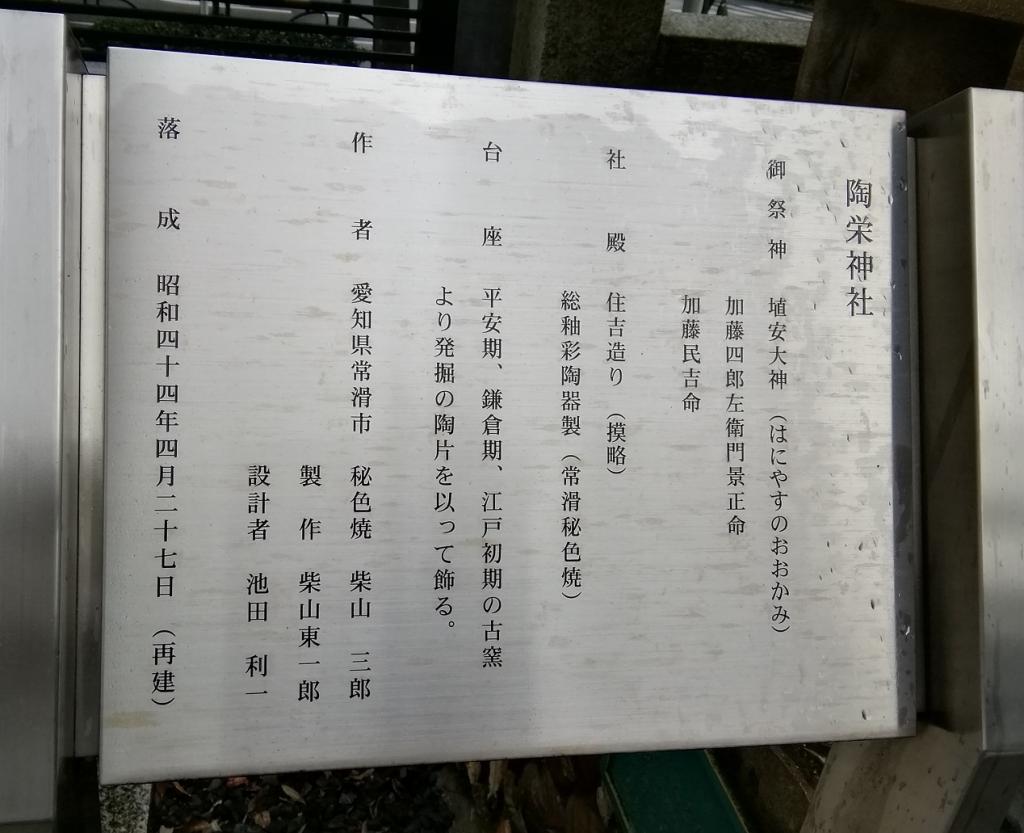 陶栄神社
御祭神 埴安大神 (はにやすのおおかみ)
加藤四郎左衛門景正命
加藤民吉命
社殿 住吉造り (摸略)
総釉彩陶器製 (常滑秘色焼)
台座 平安期、鎌倉期、江戸初期の古窯
より発掘の陶片を以って飾る。
作者 愛知県常滑市 秘色焼 柴山 三郎
製作 柴山東一郎
設計者 池田 利一
落成 昭和四十四年四月二十七日 (再建)